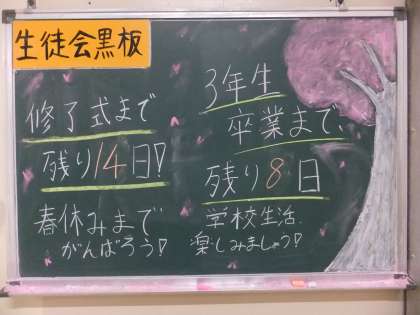 生徒会黒板
修了式まで
残り14日!
春休みまで
がんばろう!
3年生
卒業まで、
残り8日
学校生活、
楽しみましょう!